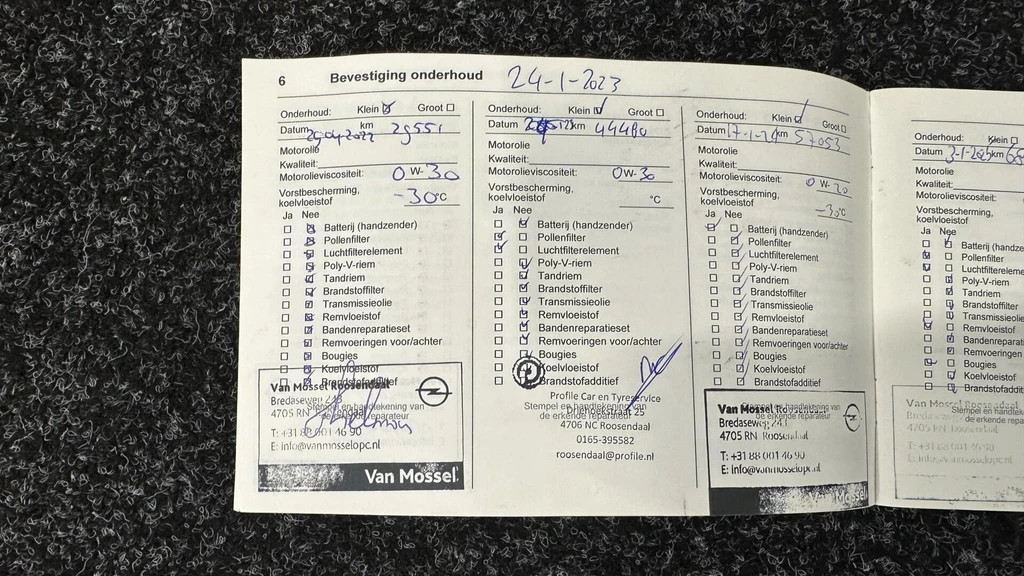 6 Bevestiging onderhoud 24-1-2023
Onderhoud: Klein Groot
Datum 29-04-2022 km 29551
Motorolie
Kwaliteit:
Motorolieviscositeit: 0 W-30
Vorstbescherming,
koelvloeistof -30°C
Ja Nee
Batterij (handzender)
Pollenfilter
Luchtfilterelement
Poly-V-riem
Tandriem
Brandstoffilter
Transmissieolie
Remvloeistof
Bandenreparatieset
Remvoeringen voor/achter
Bougies
Koelvloeistof
Brandstofadditief
Stempel en handtekening van
de erkende reparateur
Van Mossel Roosendaal
Bredaseweg 243
4705 RN Roosendaal
T: +31 88 001 46 90
E: info@vanmosselopc.nl
Van Mossel
Onderhoud: Klein Groot
Datum km 44480
Motorolie
Kwaliteit:
Motorolieviscositeit: 0W-30
Vorstbescherming,
koelvloeistof °C
Ja Nee
Batterij (handzender)
Pollenfilter
Luchtfilterelement
Poly-V-riem
Tandriem
Brandstoffilter
Transmissieolie
Remvloeistof
Bandenreparatieset
Remvoeringen voor/achter
Bougies
Koelvloeistof
Brandstofadditief
Stempel en handtekening van
de erkende reparateur
Profile Car en Tyreservice
25
4706 NC Roosendaal
0165-395582
roosendaal@profile.nl
Onderhoud: Klein Groot
Datum 17-1-24 km 57053
Motorolie
Kwaliteit:
Motorolieviscositeit: 0 W-20
Vorstbescherming,
koelvloeistof -30°C
Ja Nee
Batterij (handzender)
Pollenfilter
Luchtfilterelement
Poly-V-riem
Tandriem
Brandstoffilter
Transmissieolie
Remvloeistof
Bandenreparatieset
Remvoeringen voor/achter
Bougies
Koelvloeistof
Brandstofadditief
Stempel en handtekening van
de erkende reparateur
Van Mossel Roosendaal
Bredaseweg 243
4705 RN Roosendaal
T: +31 88 001 46 90
E: info@vanmosselopc.nl
Van Mossel
Onderhoud: Klein
Datum 3-1-2025 km
Motorolie
Kwaliteit:
Motorolieviscositeit:
Vorstbescherming,
koelvloeistof
Ja Nee
Batterij (handz
Pollenfilter
Luchtfilterelem
Poly-V-riem
Tandriem
Brandstoffilter
Transmissieolie
Remvloeistof
Bandenreparati
Remvoeringen
Bougies
Koelvloeistof
Brandstofadditi
Stempel en hand
de erkende